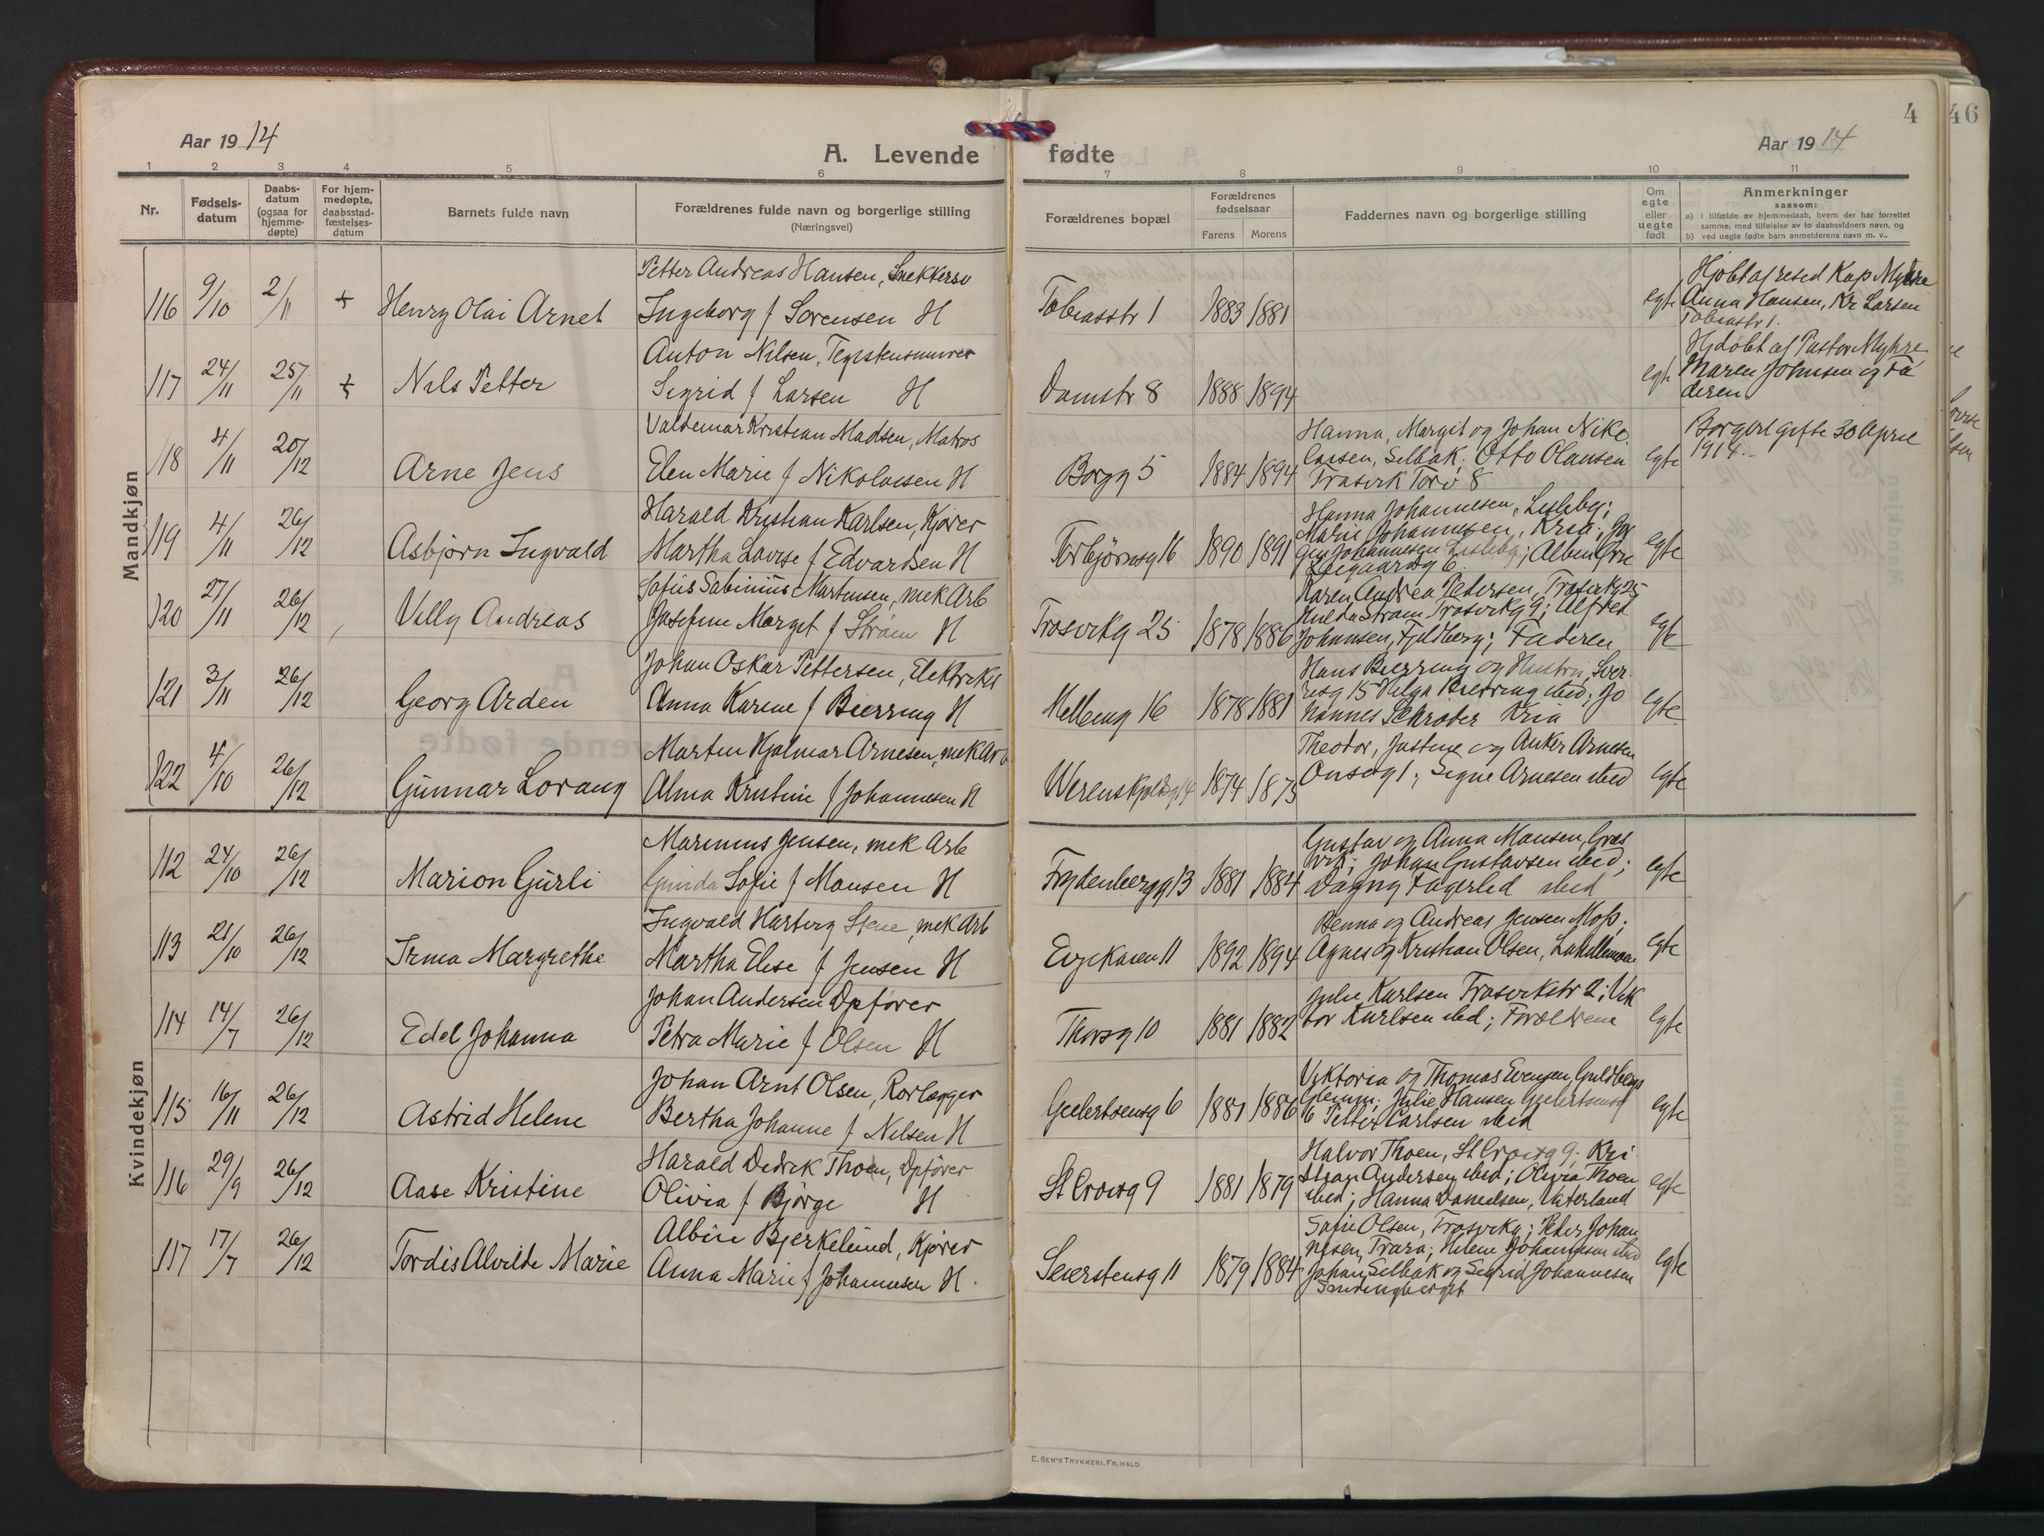 Aar 1914
A. Levende fødte
Aar 1914
4
46
1 2 3 4 5 6 7 8 9 10 11
Nr.
Fødsels-
datum
Daabs-
datum
(ogsaa for
hjemme-
døpte)
For hjem-
medøpte,
daabsstad-
fæstelses-
datum
Barnets fulde navn
Forældrenes fulde navn og borgerlige stilling
(Næringsvei)
Forældrenes bopæl
Forældrenes
fødselsaar
Farens Morens
Faddernes navn og borgerlige stilling
Om
egte
eller
uegte
født
Anmerkninger
saasom:
a) i tilfælde av hjemmedaab, hvem der har forrettet
samme, med tilføielse av to daabsvidners navn, og
b) ved uegte fødte barn anmelderens navn m. v..
Mandkjøn
116 9/10 2/11 + Henry Olai Arnet
Petter Andreas Hansen, Snekkersv
Ingeborg f Sorensen H
Tobiasstr 1 1883 1881 egte
Hjdøbt af resed Kap Myhre
Anna Hansen, Kr Larsen
Tobiasstr 1.
117 24/11 25/11 + Nils Petter
Anton Nilsen, Teglstensmurer
Sigrid f Larsen H
Damstr 8 1888 1894 egte
Hjdøbt af Pastor Myhre
Maren Johnsen og Fa
deren
118 4/11 20/12 Arne Jens
Valdemar Kristian Madsen, Matros
Elen Marie f Nikolaisen H
Borgg 5 1884 1894
Hanna, Margit og Johan Niko
laisen, Selbak; Otto Olausen
Trosvik Torv 8
egte
Borgerl gifte 30 April
1914.
119 4/11 26/12 Asbjørn Ingvald
Harald Kristian Karlsen, Kjører
Martha Lovise f Edvardsen H
Torbjørnsg 16 1890 1891
Hanna Johannesen, Lisleby;
Marie Johannesen, Kria;
Johannesen Lisleby; Albin
6.
egte
120 27/11 26/12 Villy Andreas
Sofus Sabinius Martinsen, mek Arb
Josefine Margit f Strøm H
Trosvikg 25 1878 1886
Karen Andrea Pedersen, Trosvikg 25
Hulda Strøm Trosvikg 9; Alfred
Johansen, Fjeldberg; Faderen
egte
121 3/11 26/12 Georg Arden
Johan Oskar Pettersen, Elektriks
Anna Karine f Bierring H
Mellemg 16 1878 1881
Hans Bierring og Hustru, Sver
resg 15 Helga Bierring sted; Jo
hannes Schrøder Kria
egte
122 4/10 26/12 Gunnar Lorang
Martin Hjalmar Arnesen, mek Arb
Alma Kristine f Johannesen H
Werenskjoldsg 14 1874 1875
Theodor, Justine og Anker Arnesen
Onsøg 1; Signe Arnesen sted
egte
Kvindekjøn
112 24/10 26/12 Marion Gurli
Marinius Jensen, mek Arb
Gunda Sofie f Monsen H
Frydenbergg 13 1881 1884
Gustav og Anna Monsen, Græs
vik; Johan Gustavsen sted;
Dagny Fagerlid sted
egte
113 21/10 26/12 Irma Margrethe
Ingvald Hartvig Stene, mek Arb
Martha Elise f Jensen H
Evjekasen 11 1892 1894
Benna og Andreas Jensen Moss;
Agnes og Kristian Olsen, Lahellemoen
egte
114 14/7 26/12 Edel Johanna
Johan Andersen Opfører
Petra Marie f Olsen H
Thorsg 10 1881 1882
Julie Karlsen Trosvikstr 2; Vik
tor Karlsen sted; Forældrene
egte
115 16/11 26/12 Astrid Helene
Johan Arnt Olsen, Rørlægger
Bertha Johanne f Nilsen H
Geelertsensg 6 1881 1886
Viktoria og Thomas Evensen, Guldbergs
Glemm; Julie Hansen Geelertsensg
6 Petter Carlsen sted
egte
116 29/9 26/12 Aase Kristine
Harald Dedrik Thoen, Opfører
Olivia f Bjørge H
St Croixg 9 1881 1879
Halvor Thoen, St Croixg 9; Kri
stian Andersen sted; Olivia Thoen
sted; Hanna Danielsen, Vaterland
egte
117 17/7 26/12 Tordis Alvilde Marie
Albin Bjerkelund, Kjører
Anna Marie f Johannesen H.
Seierstensg 11 1879 1884
Sofie Olsen, Trosvikg; Peder Johan
nesen, Trara; Helene Johannesen sted
Johan Selbak og Sigrid Johannesen
Smertingberget
egte
E. Sem's Trykkeri, Fr.hald